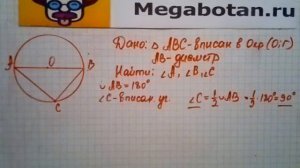 Megabotan.ru
Дано: △ ABC-вписан в Окр (O;r)
AB-диаметр
Найти: ∠A, ∠B, ∠C
A O B
C
∪AB=180°
∠C-вписан уг.
∠C=½∪AB=½·180°=90°